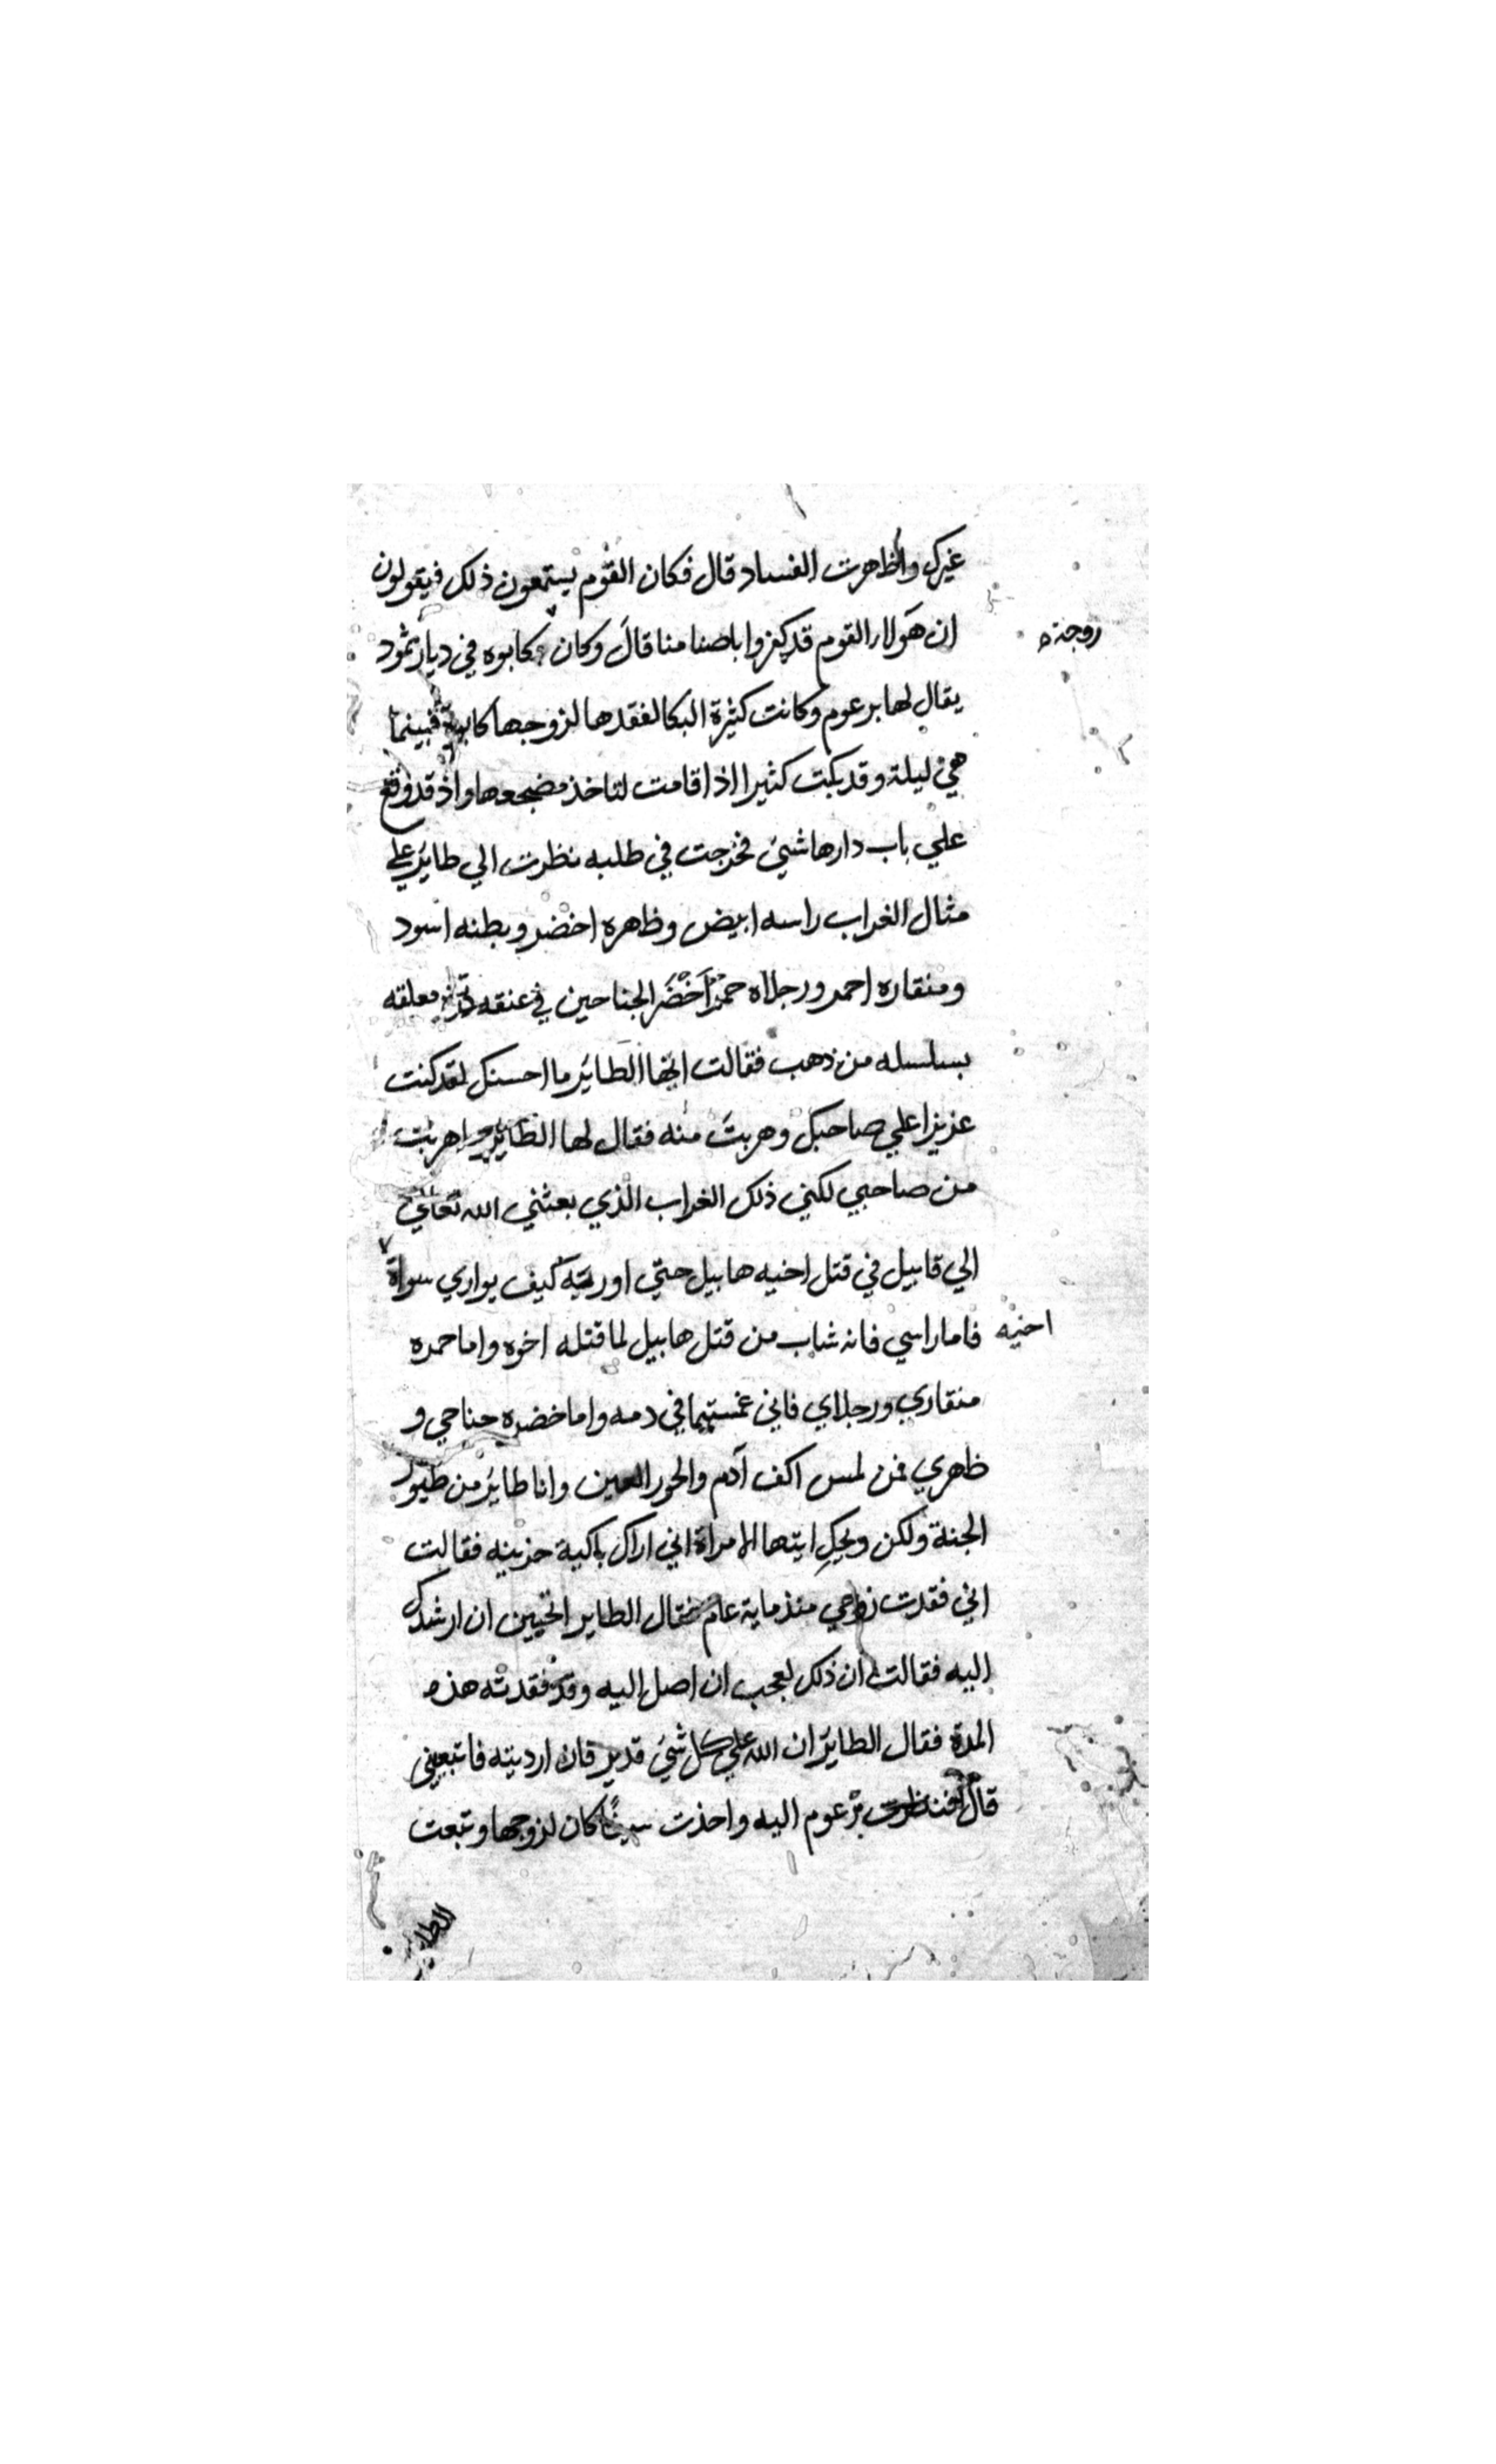 غيرك واظاهرت الفساد قال فكان القوم يستمعون ذلك فيقولون
ان هولاء القوم قد كفروا باصنامنا قال وكان لكابوه في ديار ثمود
زوجة
يقال لها برعوم وكانت كثيرة البكا لفقدها لزوجها كابوه فبينما
هي في ليلة وقد بكت كثيرا اذا قامت لتاخذ مضجعها واذ قد وقع
علي باب دارها شيئ فخرجت في طلبه نظرت الي طاير علي
مثال الغراب راسه ابيض وظاهره اخضر وبطنه اسود
ومنقاره احمر ورجلاه حمرا اخضر الجناحين في عنقه معلقه
بسلسله من ذهب فقالت ايها الطاير ما احسنك لقد كنت
عزيزا علي صاحبك وهربت منه فقال لها الطاير ما هربت
من صاحبي لكني ذلك الغراب الذي بعثني الله تعالي
الي قابيل في قتل اخيه هابيل حتي اوريته كيف يواري سواة
اخيه
فاما راسي فانه شاب من قتل هابيل لما قتله اخوه واما حمره
منقاري ورجلاي فاني غمستهما في دمه واما خضره جناحي و
ظهري فمن لمس اكف آدم والحور العين وانا طاير من طيور
الجنة ولكن ويحك ايتها الامراة اني اراك باكية حزينه فقالت
اني فقدت زوجي منذ ماية عام فقال الطاير اتحبين ان ارشدك
اليه فقالت ان ذلك لعجب ان اصل اليه وقد فقدته هذه
المدة فقال الطاير ان الله علي كل شيئ قدير فان اردتيه فاتبعيني
قال فنظرت برعوم اليه واخذت سيفا كان لزوجها وتبعت
الطاير